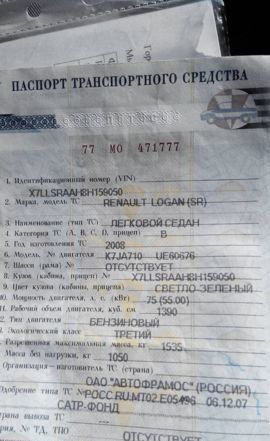 Гор
ПАСПОРТ ТРАНСПОРТНОГО СРЕДСТВА
77 МО 471777
1. Идентификационный номер (VIN) X7LLSRAAH8H159050
2. Марка, модель ТС RENAULT LOGAN (SR)
3. Наименование (тип ТС) ЛЕГКОВОЙ СЕДАН
4. Категория ТС (А, В, С, D, прицеп) B
5. Год изготовления ТС 2008
6. Модель, № двигателя K7JA710 UE60676
7. Шасси (рама) № ОТСУТСТВУЕТ
8. Кузов (кабина, прицеп) № X7LLSRAAH8H159050
9. Цвет кузова (кабины, прицепа) СВЕТЛО-ЗЕЛЕНЫЙ
10. Мощность двигателя, л. с. (кВт) 75 (55.00)
11. Рабочий объем двигателя, куб. см 1390
12. Тип двигателя БЕНЗИНОВЫЙ
Экологический класс ТРЕТИЙ
Разрешенная максимальная масса, кг 1535
Масса без нагрузки, кг 1050
Организация-изготовитель ТС (страна)
ОАО "АВТОФРАМОС" (РОССИЯ)
Одобрение типа ТС № РОСС RU.МТ02.Е05496 06.12.07
САТР-ФОНД
страна вывоза ТС
рия, № ТД, ТПО ОТСУТСТВУЕТ